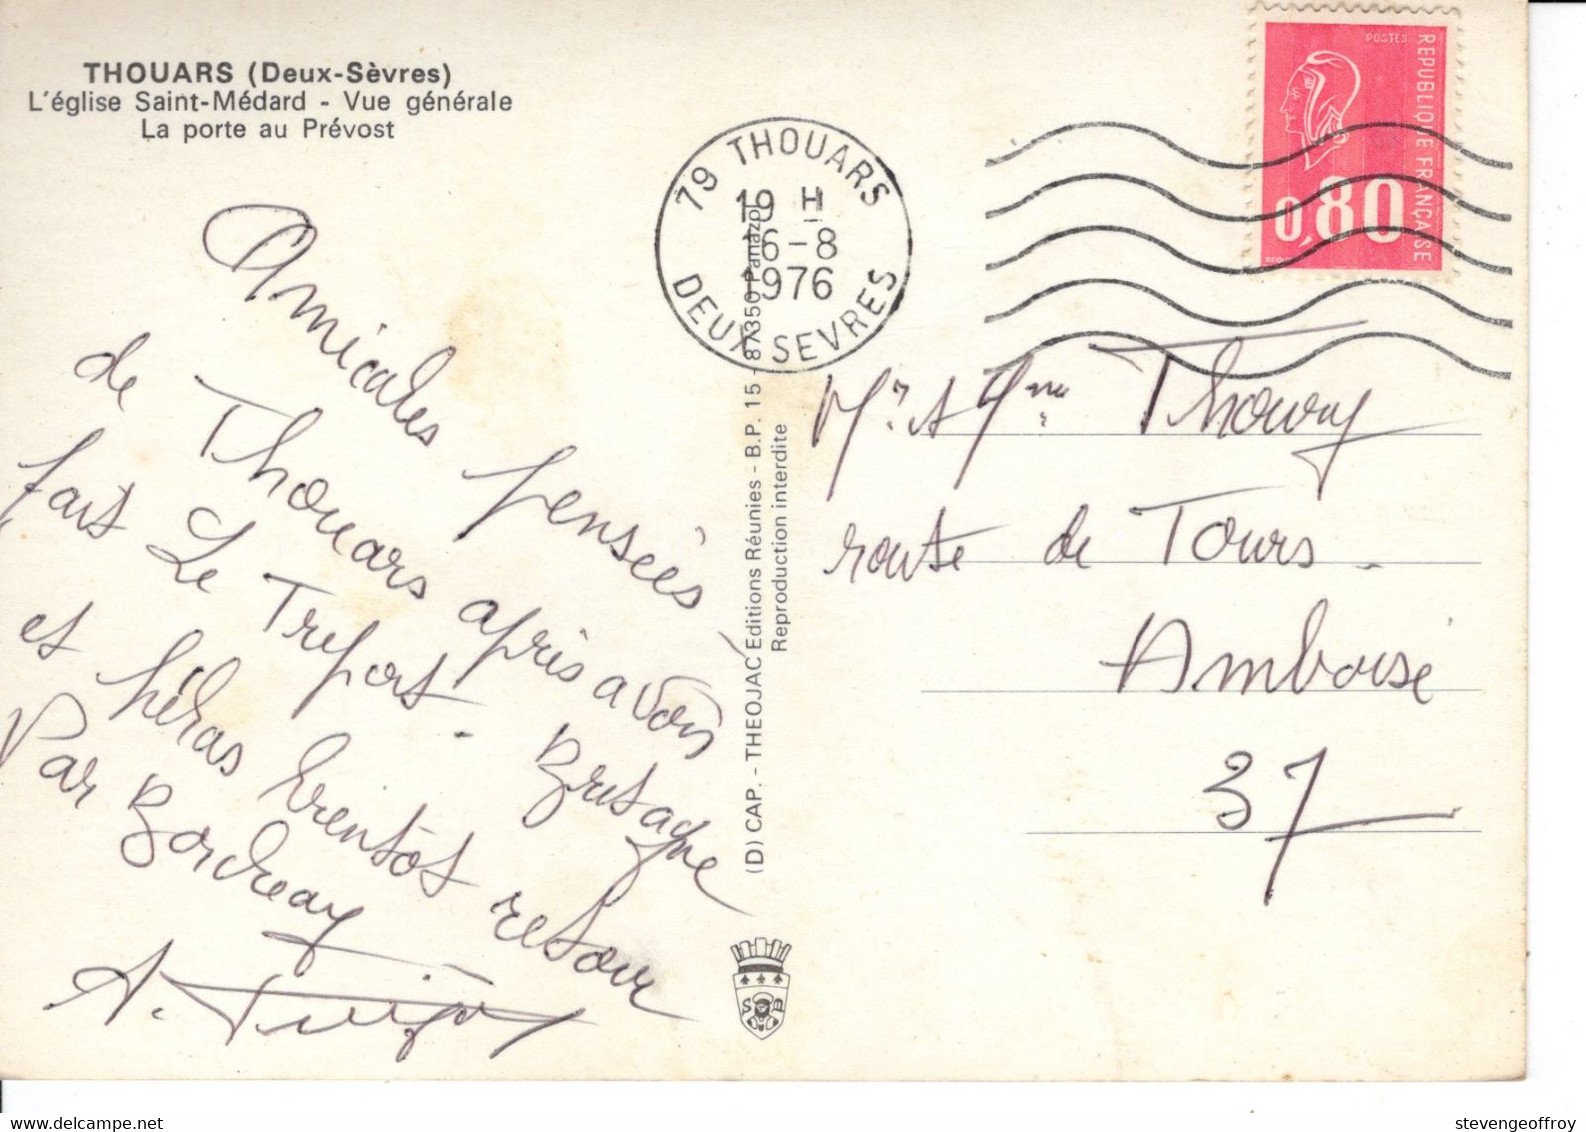 THOUARS (Deux-Sèvres)
L'église Saint-Médard - Vue générale
La porte au Prévost
79 THOUARS
19 H
16-8
1976
DEUX SEVRES
POSTES
REPUBLIQUE FRANÇAISE
0,80
Amicales pensées
de Thouars après avoir
fait Le Treport. Bretagne
et hélas bientôt retour
Par Bordeaux
A.
(D) CAP. - THEOJAC Editions Réunies - B.P. 15 - 87350 Panazol
Reproduction interdite
Mr. & Mme Thoury
route de Tours.
Amboise
37
delcampe.net
stevengeoffroy